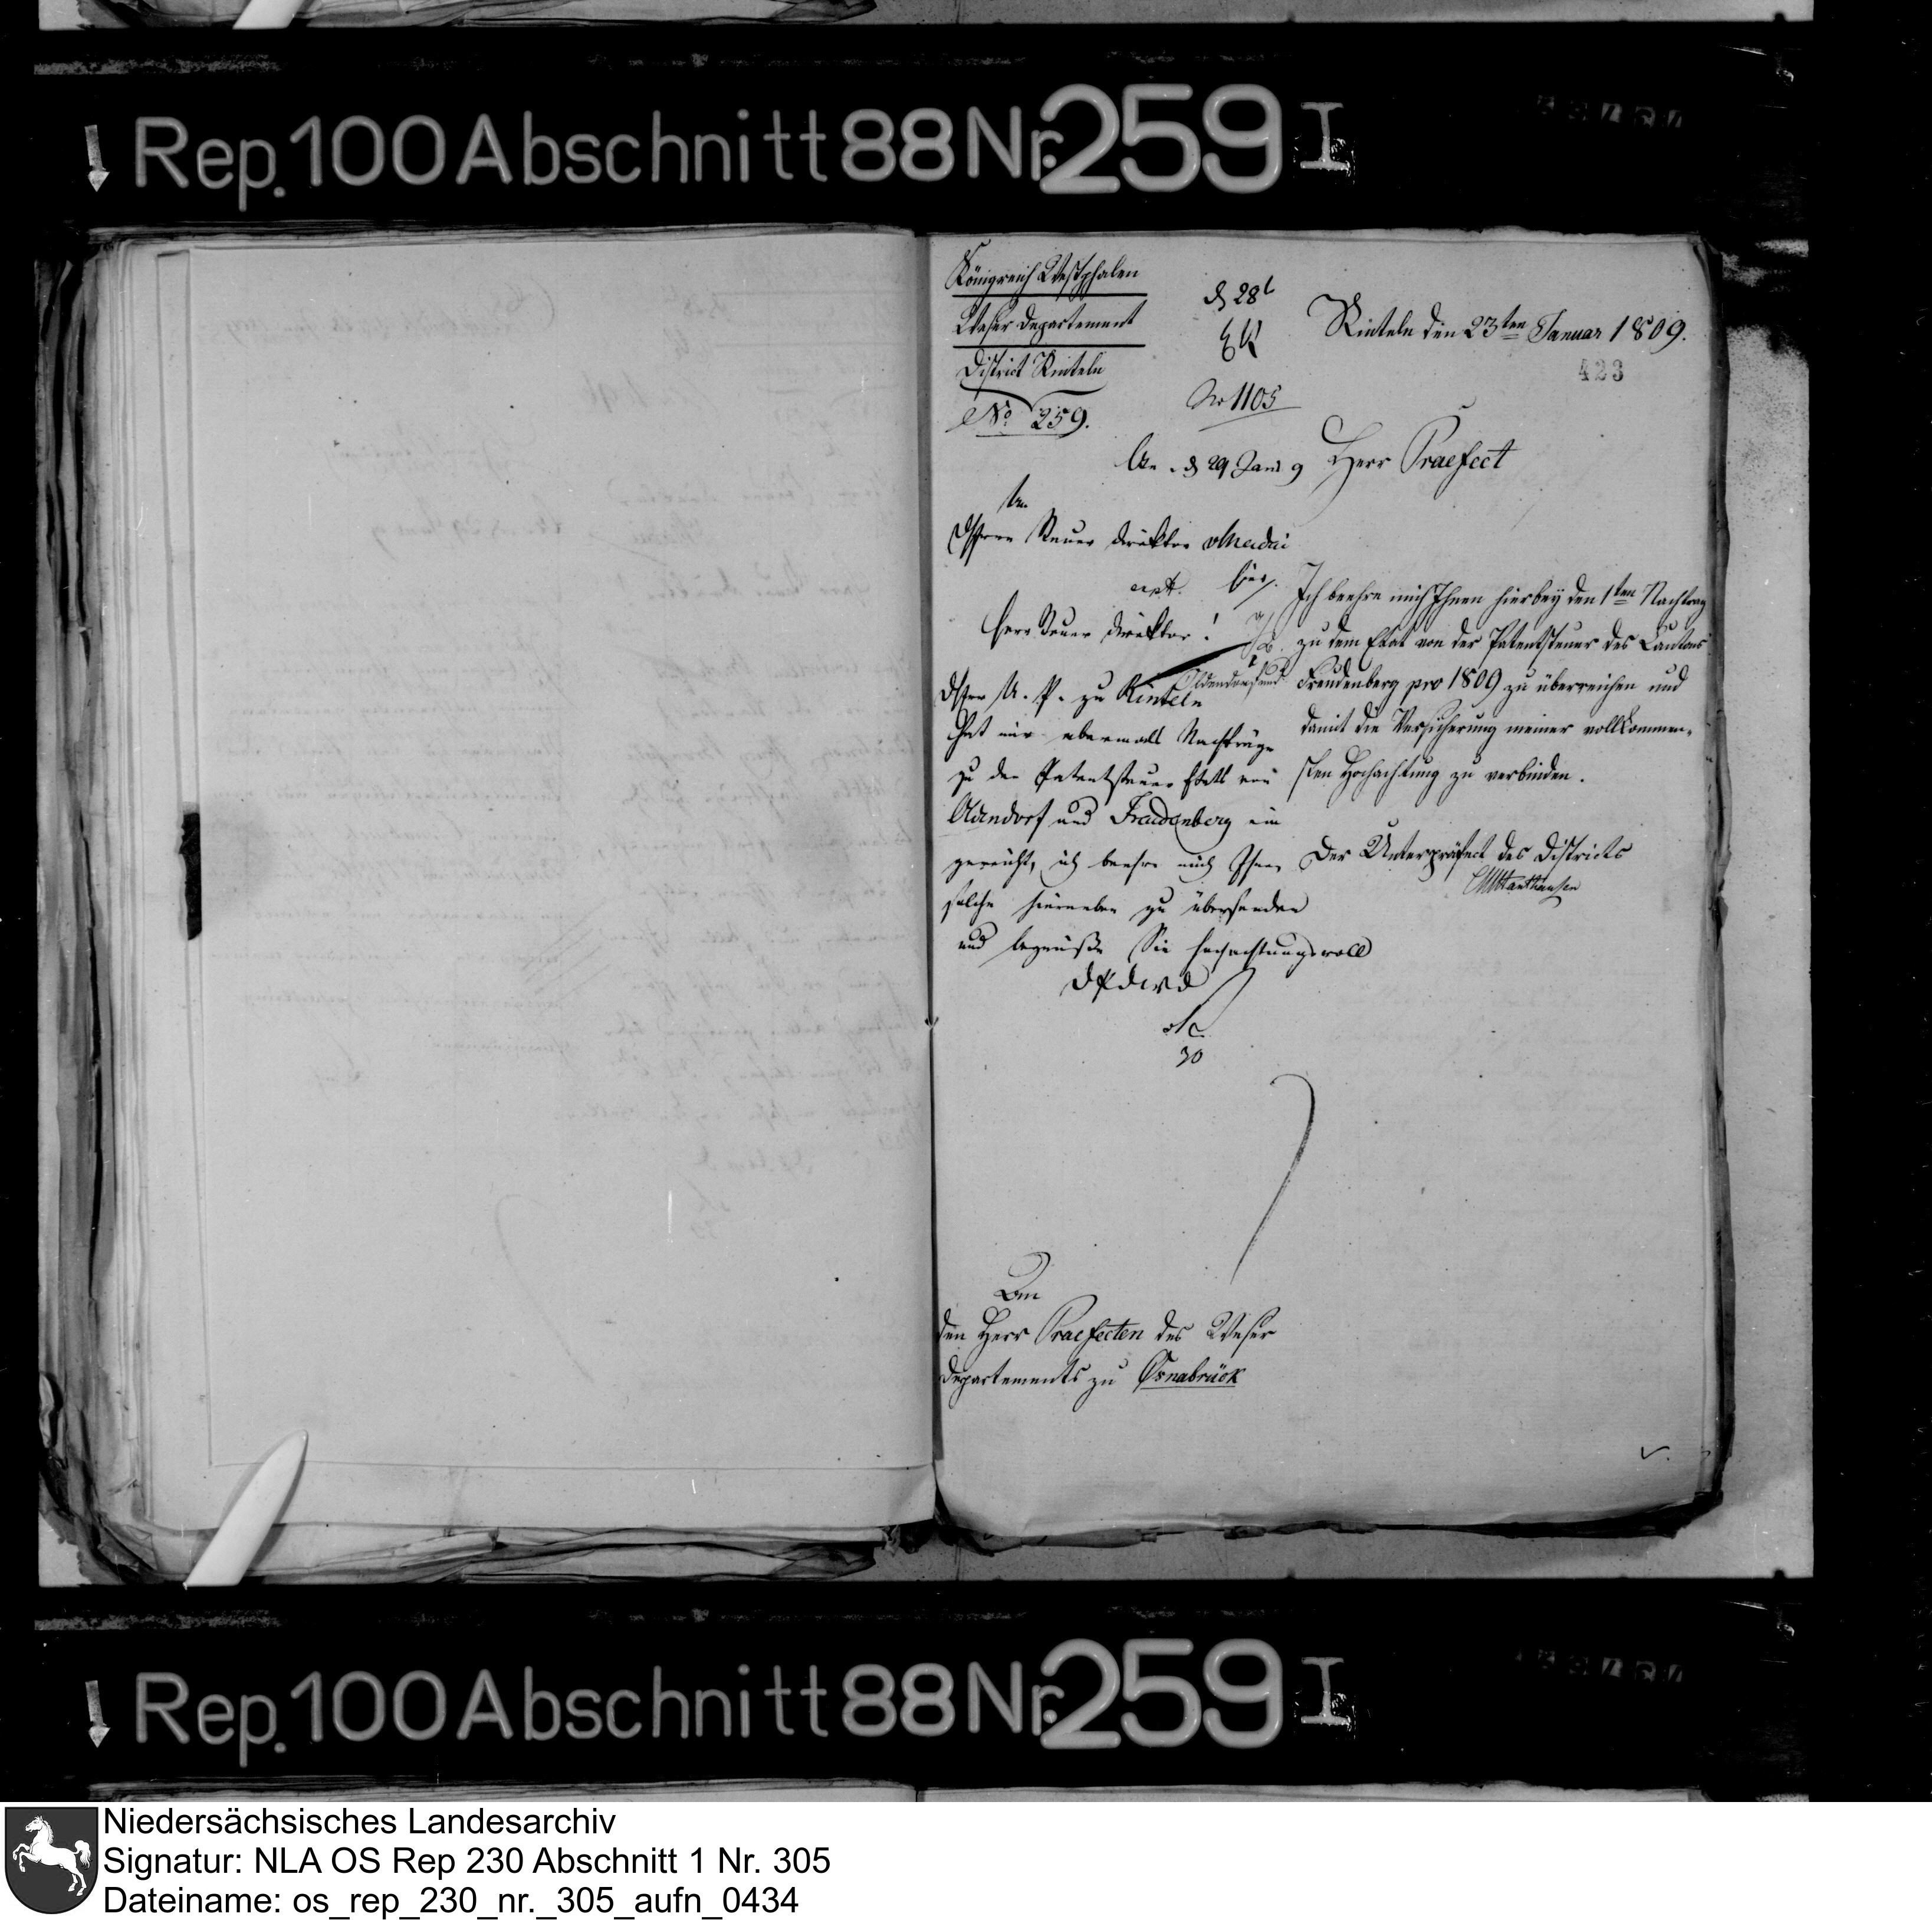 Rep. 100 Abschnitt 88 Nr. 259 I
Königreich Westphalen
Weser Departement
District Rinteln
No. 259.
d 28t
No 1105
Rinteln den 23ten Januar 1809.
423
Herr Praefect
Ich beehre mich Ihnen hierbey den 1ten Nachtrag
zu dem Etat von der Patentsteuer des Cantons
Oldendorf und Freudenberg pro 1809 zu überreichen und
damit die Versicherung meiner vollkommen-
sten Hochachtung zu verbinden.
Der Unterpräfect des Districts
d 29 Janr 9
An
Herrn Steuer Direktor
Herr Steuer Direktor!
Der U. P. zu Rinteln
hat mir abermals Nachträge
zu den Patentsteuer Etats von
Oldendorf und Freudenberg ein
gereicht, ich beehre mich Ihnen
solche hierneben zu übersenden
und begrüße Sie hochachtungsvoll
30
An
den Herr Praefecten des Weser
Departements zu Osnabrück
Rep. 100 Abschnitt 88 Nr. 259 I
Niedersächsisches Landesarchiv
Signatur: NLA OS Rep 230 Abschnitt 1 Nr. 305
Dateiname: os_rep_230_nr._305_aufn_0434